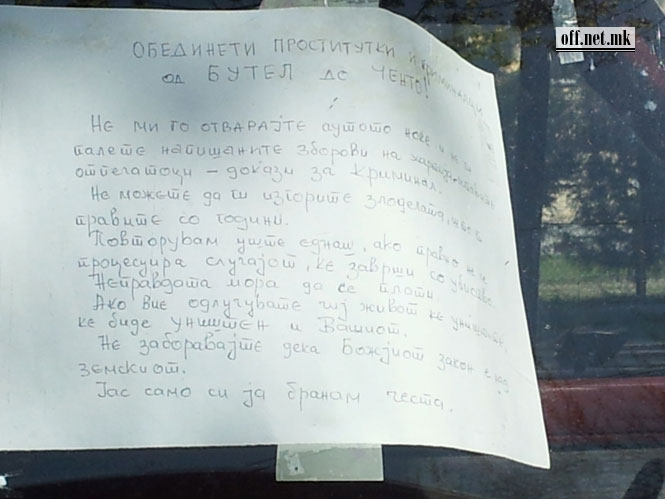 off.net.mk
ОБЕДИНЕТИ ПРОСТИТУТКИ И КРИМИНАЛЦИ
ОД БУТЕЛ ДО ЧЕНТО!
Не ми го отварајте аутото ноќе и не
палете напишаните зборови на хартија
отпечатоци – докази за криминал.
Не можете да ги изгорите злоделата, што
правите со години.
Повторувам уште еднаш, ако правно не се
процесуира случајот, ќе заврши со убиство.
Неправдата мора да се плати.
Ако вие одлучувате чиј живот ќе уништите,
ќе биде уништен и Вашиот.
Не заборавајте дека Божјиот закон е над
земскиот.
Јас само си ја бранам честа.